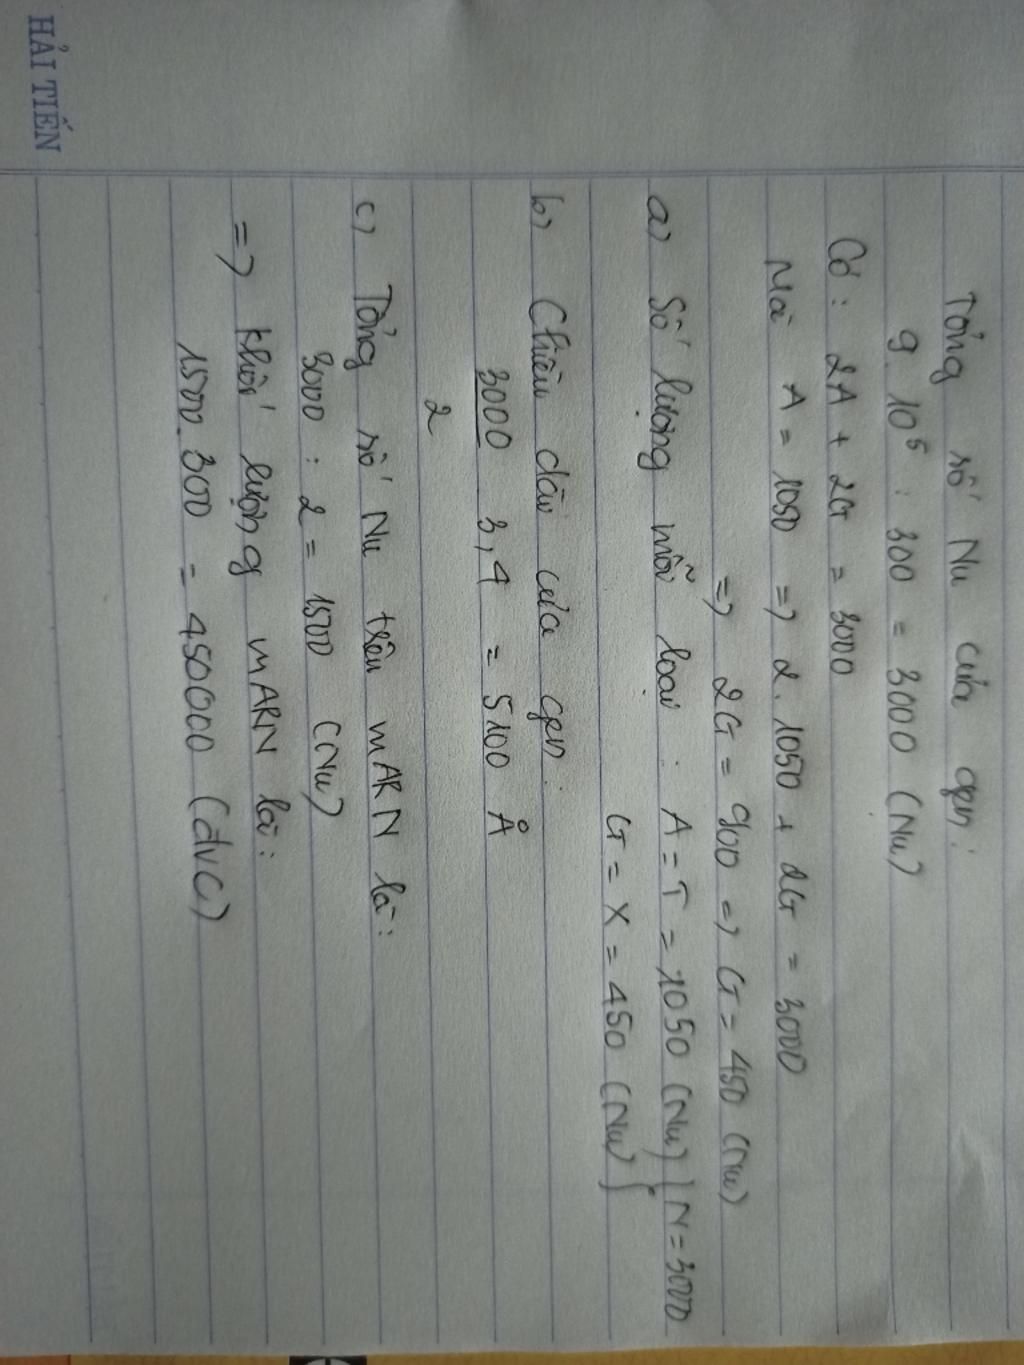 HẢI TIẾN
Tổng số Nu của gen:
9. 10⁵ : 300 = 3000 (Nu)
Có : 2A + 2G = 3000
Mà A = 1050 => 2. 1050 + 2G = 3000
=> 2G = 900 => G = 450 (Nu)
a) Số lượng mỗi loại : A = T = 1050 (Nu) } N = 3000
G = X = 450 (Nu)
b) Chiều dài của gen:
3000/2 3,4 = 5100 Å
c) Tổng số Nu trên mARN là:
3000 : 2 = 1500 (Nu)
=> Khối lượng mARN là:
1500. 300 = 450000 (đvC)